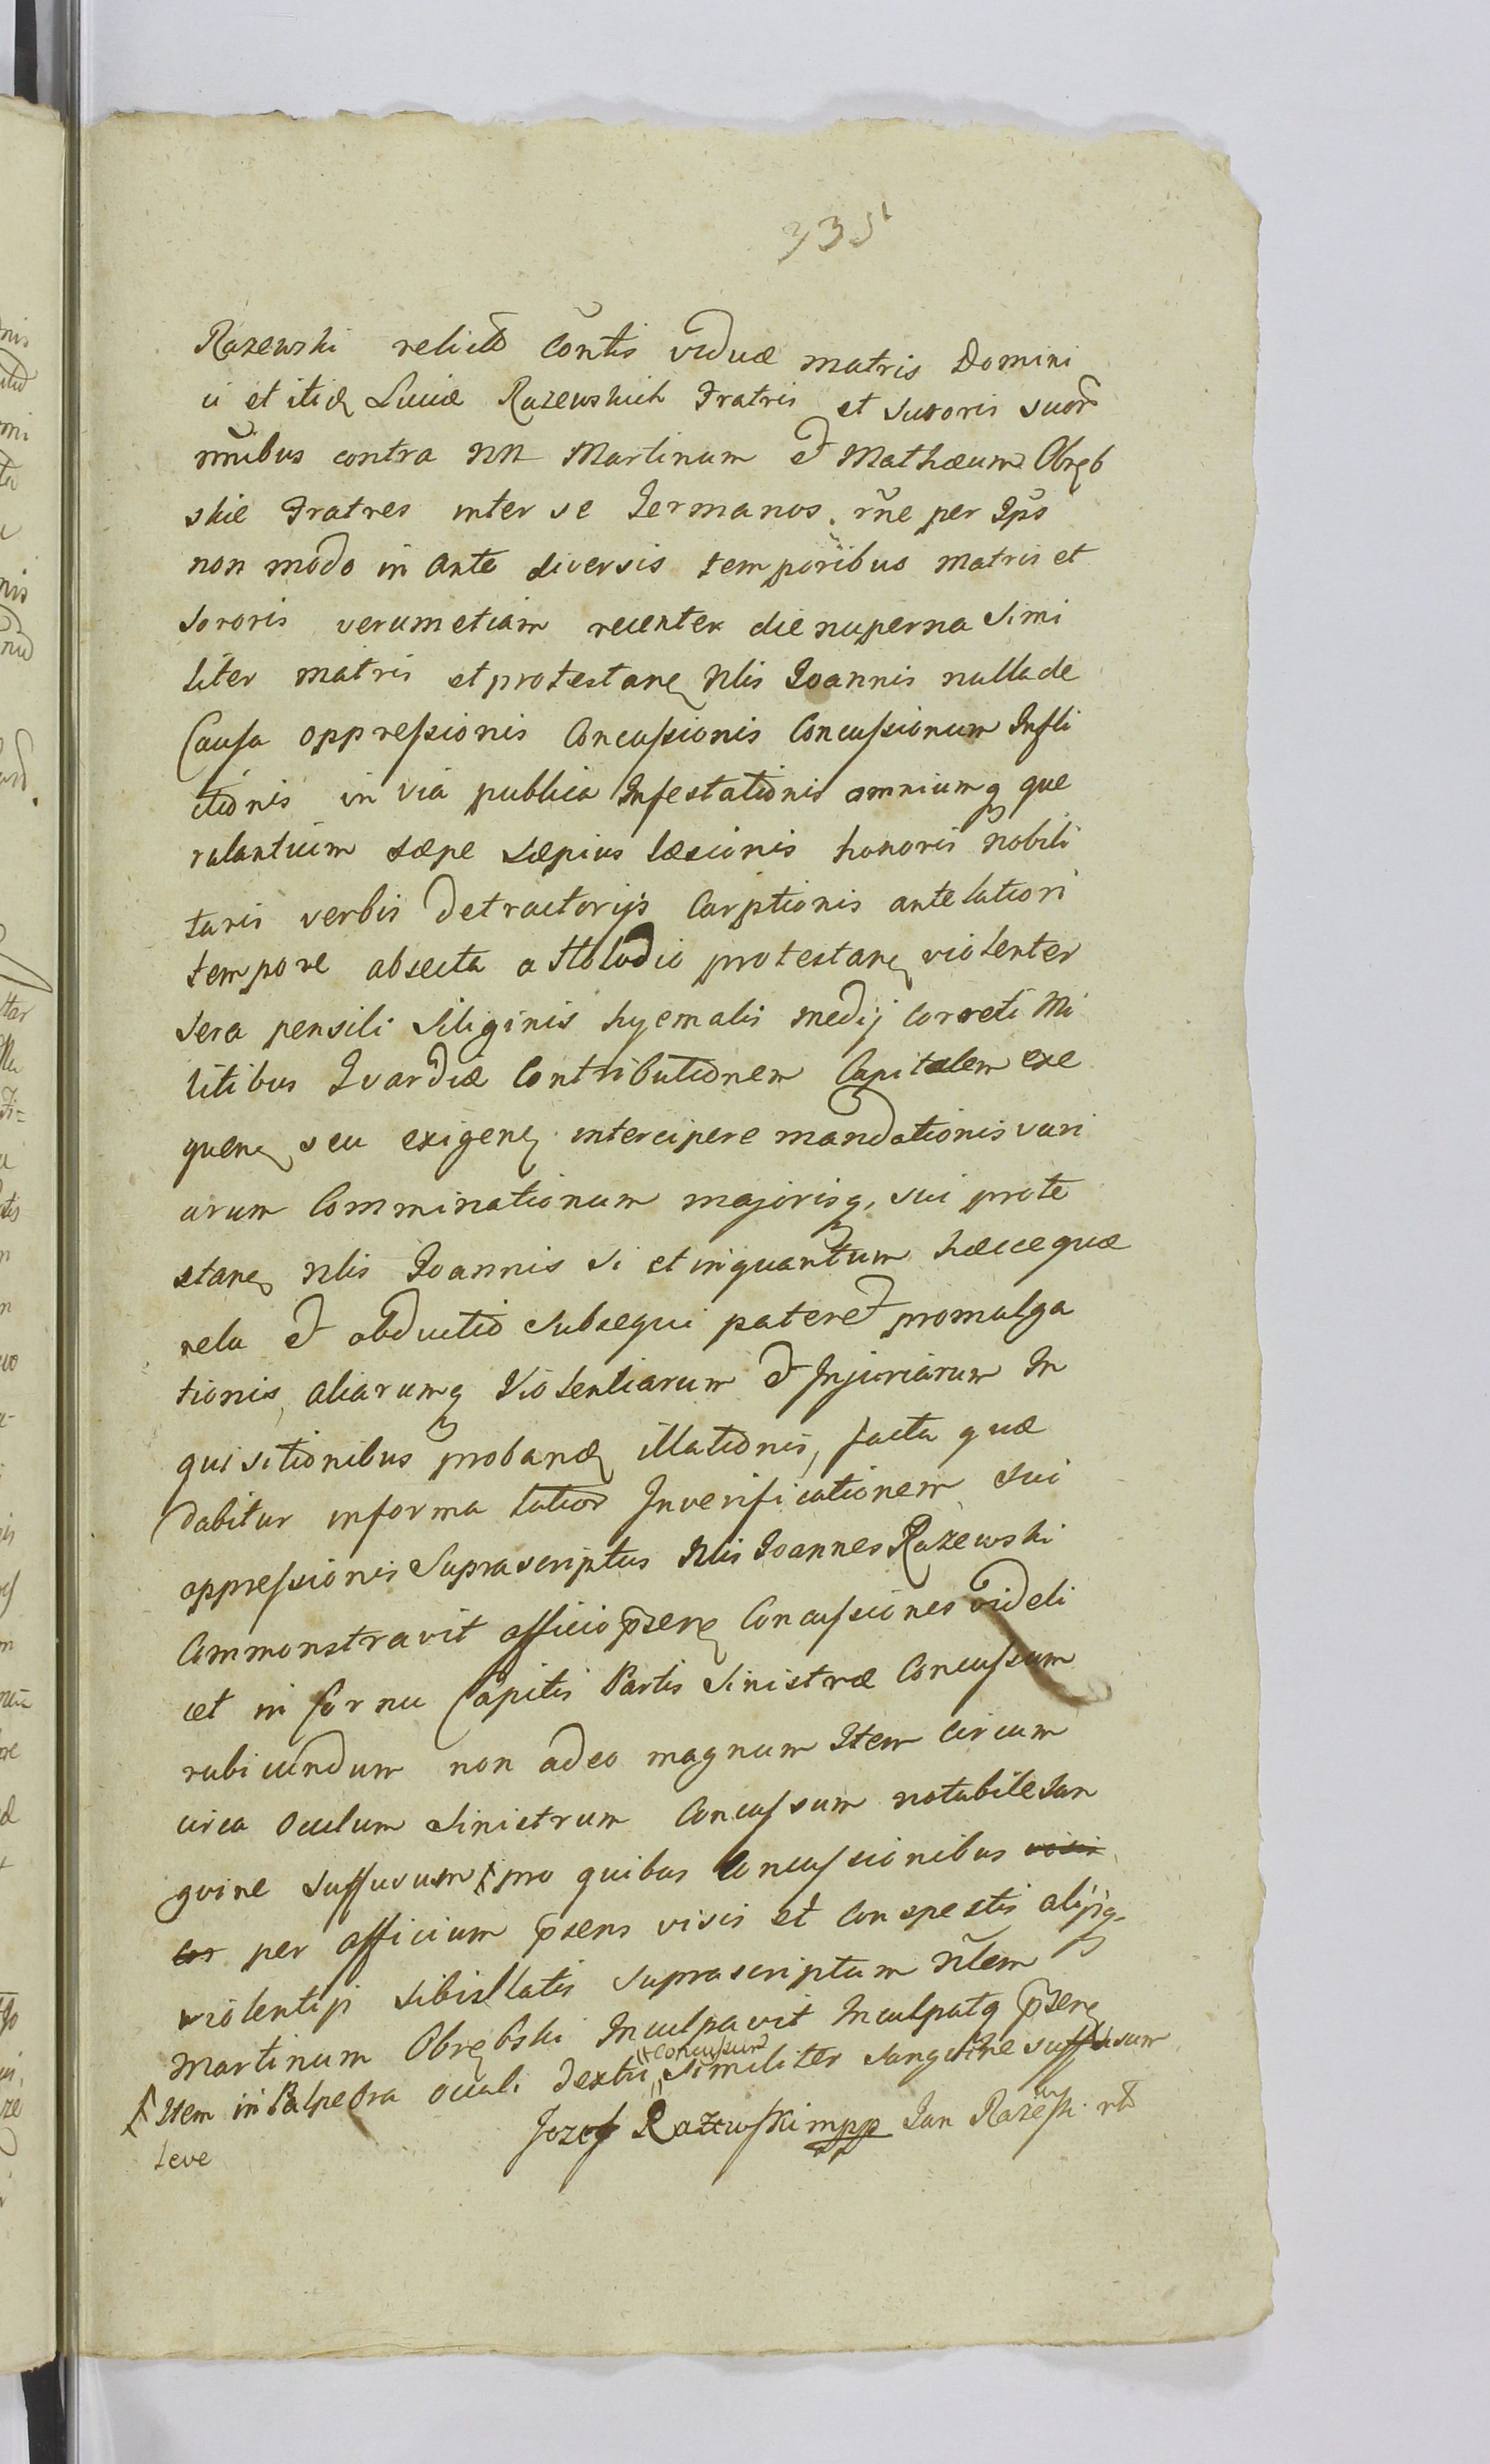 335
Razewski relictæ Contis viduæ matris Domini
ci et itidę Luciæ Razewskich Fratris et Sororis suor
nũibus contra NN Martinum et Mathæum Obręb
skie Fratres inter se Germanos rñe per Ipõs
non modo in ante diversis temporibus matris et
Sororis verumetiam recenter die nuperna Simi
liter matris et protestanę Nlis Joannis nulla de
Causa oppressionis Concussionis Concussionum Infli
ctionis in via publica Infestationis omniumq que
rulantium sæpe sæpius læsionis honoris Nobili
taris verbis detractorijs Carptionis antelatiori
tempore absecta a Holodio protestanę violenter
sera pensili Siliginis hyemalis medij Correti Mi
litibus Gvardiæ Contributionem Capitalem exe
quenę seu exigenę intercipere mandationis vari
arum Comminationum majorisq, sui prote
stanę Nlis Joannis si et inquantum hæcce quæ
rela et abductio subsequi pateret promulga
tionis, aliarumq Violentiarum et Injuriarum In
quisitionibus probandę illationis, facta quæ
dabitur informa latior Inverificationem sui
oppressionis Suprascriptus Nlis Joannes Razewski
Commonstravit officio p̃senę Concussiones videli
cet in Cornu Capitis Partis Sinistræ Concussum
rubicundum non adeo magnum Item circum
circa Oculum Sinistrum Concussum notabile San
gvine suffusum pro quibus Concussionibus visis
cor per officium p̃sens visis et Conspectis alijsq,
violentijs sibi illatis suprascriptum Ñlem
Martinum Obrębski Inculpavit Inculpatq p̃senę
Item in Palpebra oculi dextri "Concussum" Similiter Sangvine suffusum
leve
Jozef Razewski mpp Jan Razewsk.